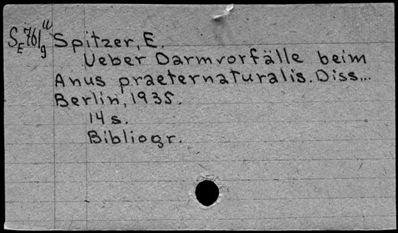 Spitzer, E.
Ueber Darmvorfälle beim
Anus praeternaturalis. Diss...
Berlin, 1935.
14 s.
Bibliogr.